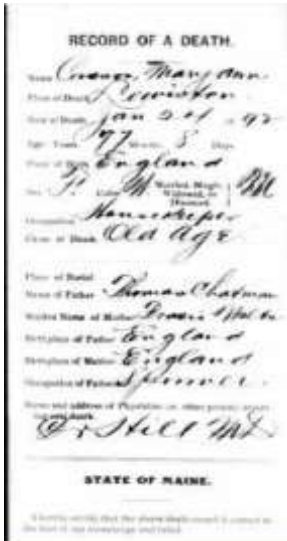 RECORD OF A DEATH.
Name Mary Ann
Place of Death, Lewiston
Date of Death, Jan 24 1892
Age: Years, 77 Months, 8 Days,
Place of Birth England
Sex F. Color W Married, Single, Widowed, or Divorced
Occupation Housekeeper
Cause of Death Old Age
Place of Burial
Name of Father Thomas Chatman
Maiden Name of Mother
Birthplace of Father England
Birthplace of Mother England
Occupation of Father Spinner
Name and address of Physician or other person
Dr Still
STATE OF MAINE.
I hereby certify that the above death record is correct to
the best of my knowledge and belief.